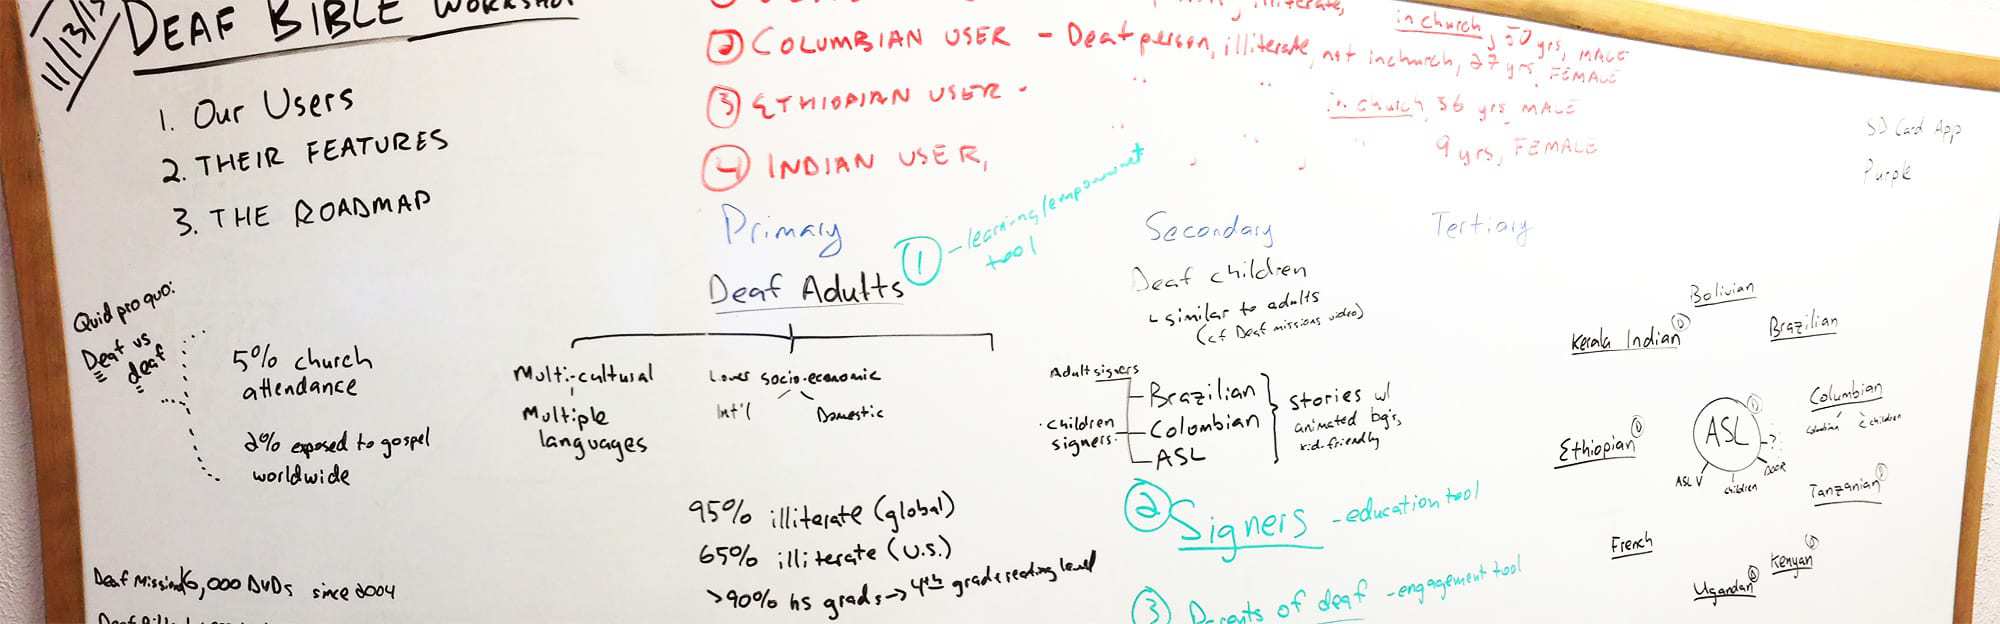 11/13/1
DEAF BIBLE WORKSHOP
1. Our Users
2. THEIR FEATURES
3. THE ROADMAP
illiterate, in church, 50 yrs, MALE
② COLUMBIAN USER - Deaf person, illiterate, not in church, 27 yrs, FEMALE
③ ETHIOPIAN USER - " " in church, 36 yrs, MALE
④ INDIAN USER, " , " , " 9 yrs, FEMALE
SD Card App
Purple
Primary
① - learning/empowerment
tool
Deaf Adults
Multi-cultural
Multiple
languages
Lower socio-economic
Int'l Domestic
95% illiterate (global)
65% illiterate (U.S.)
>90% hs grads → 4th grade reading level
Quid pro quo:
Deaf vs
deaf
5% church
attendance
2% exposed to gospel
worldwide
Deaf Missions 6,000 DVDs since 2004
Secondary
Deaf children
↳ similar to adults
(cf Deaf missions video)
Adult signers
children
signers
Brazilian
Colombian
ASL
stories w/
animated bg's,
kid-friendly
② Signers - education tool
③ Parents of deaf - engagement tool
Tertiary
Bolivian
Kerala Indian
Brazilian
Columbian
Columbian children
Ethiopian
ASL
ASLV
children
DOOR
Tanzanian
French
Kenyan
Ugandan